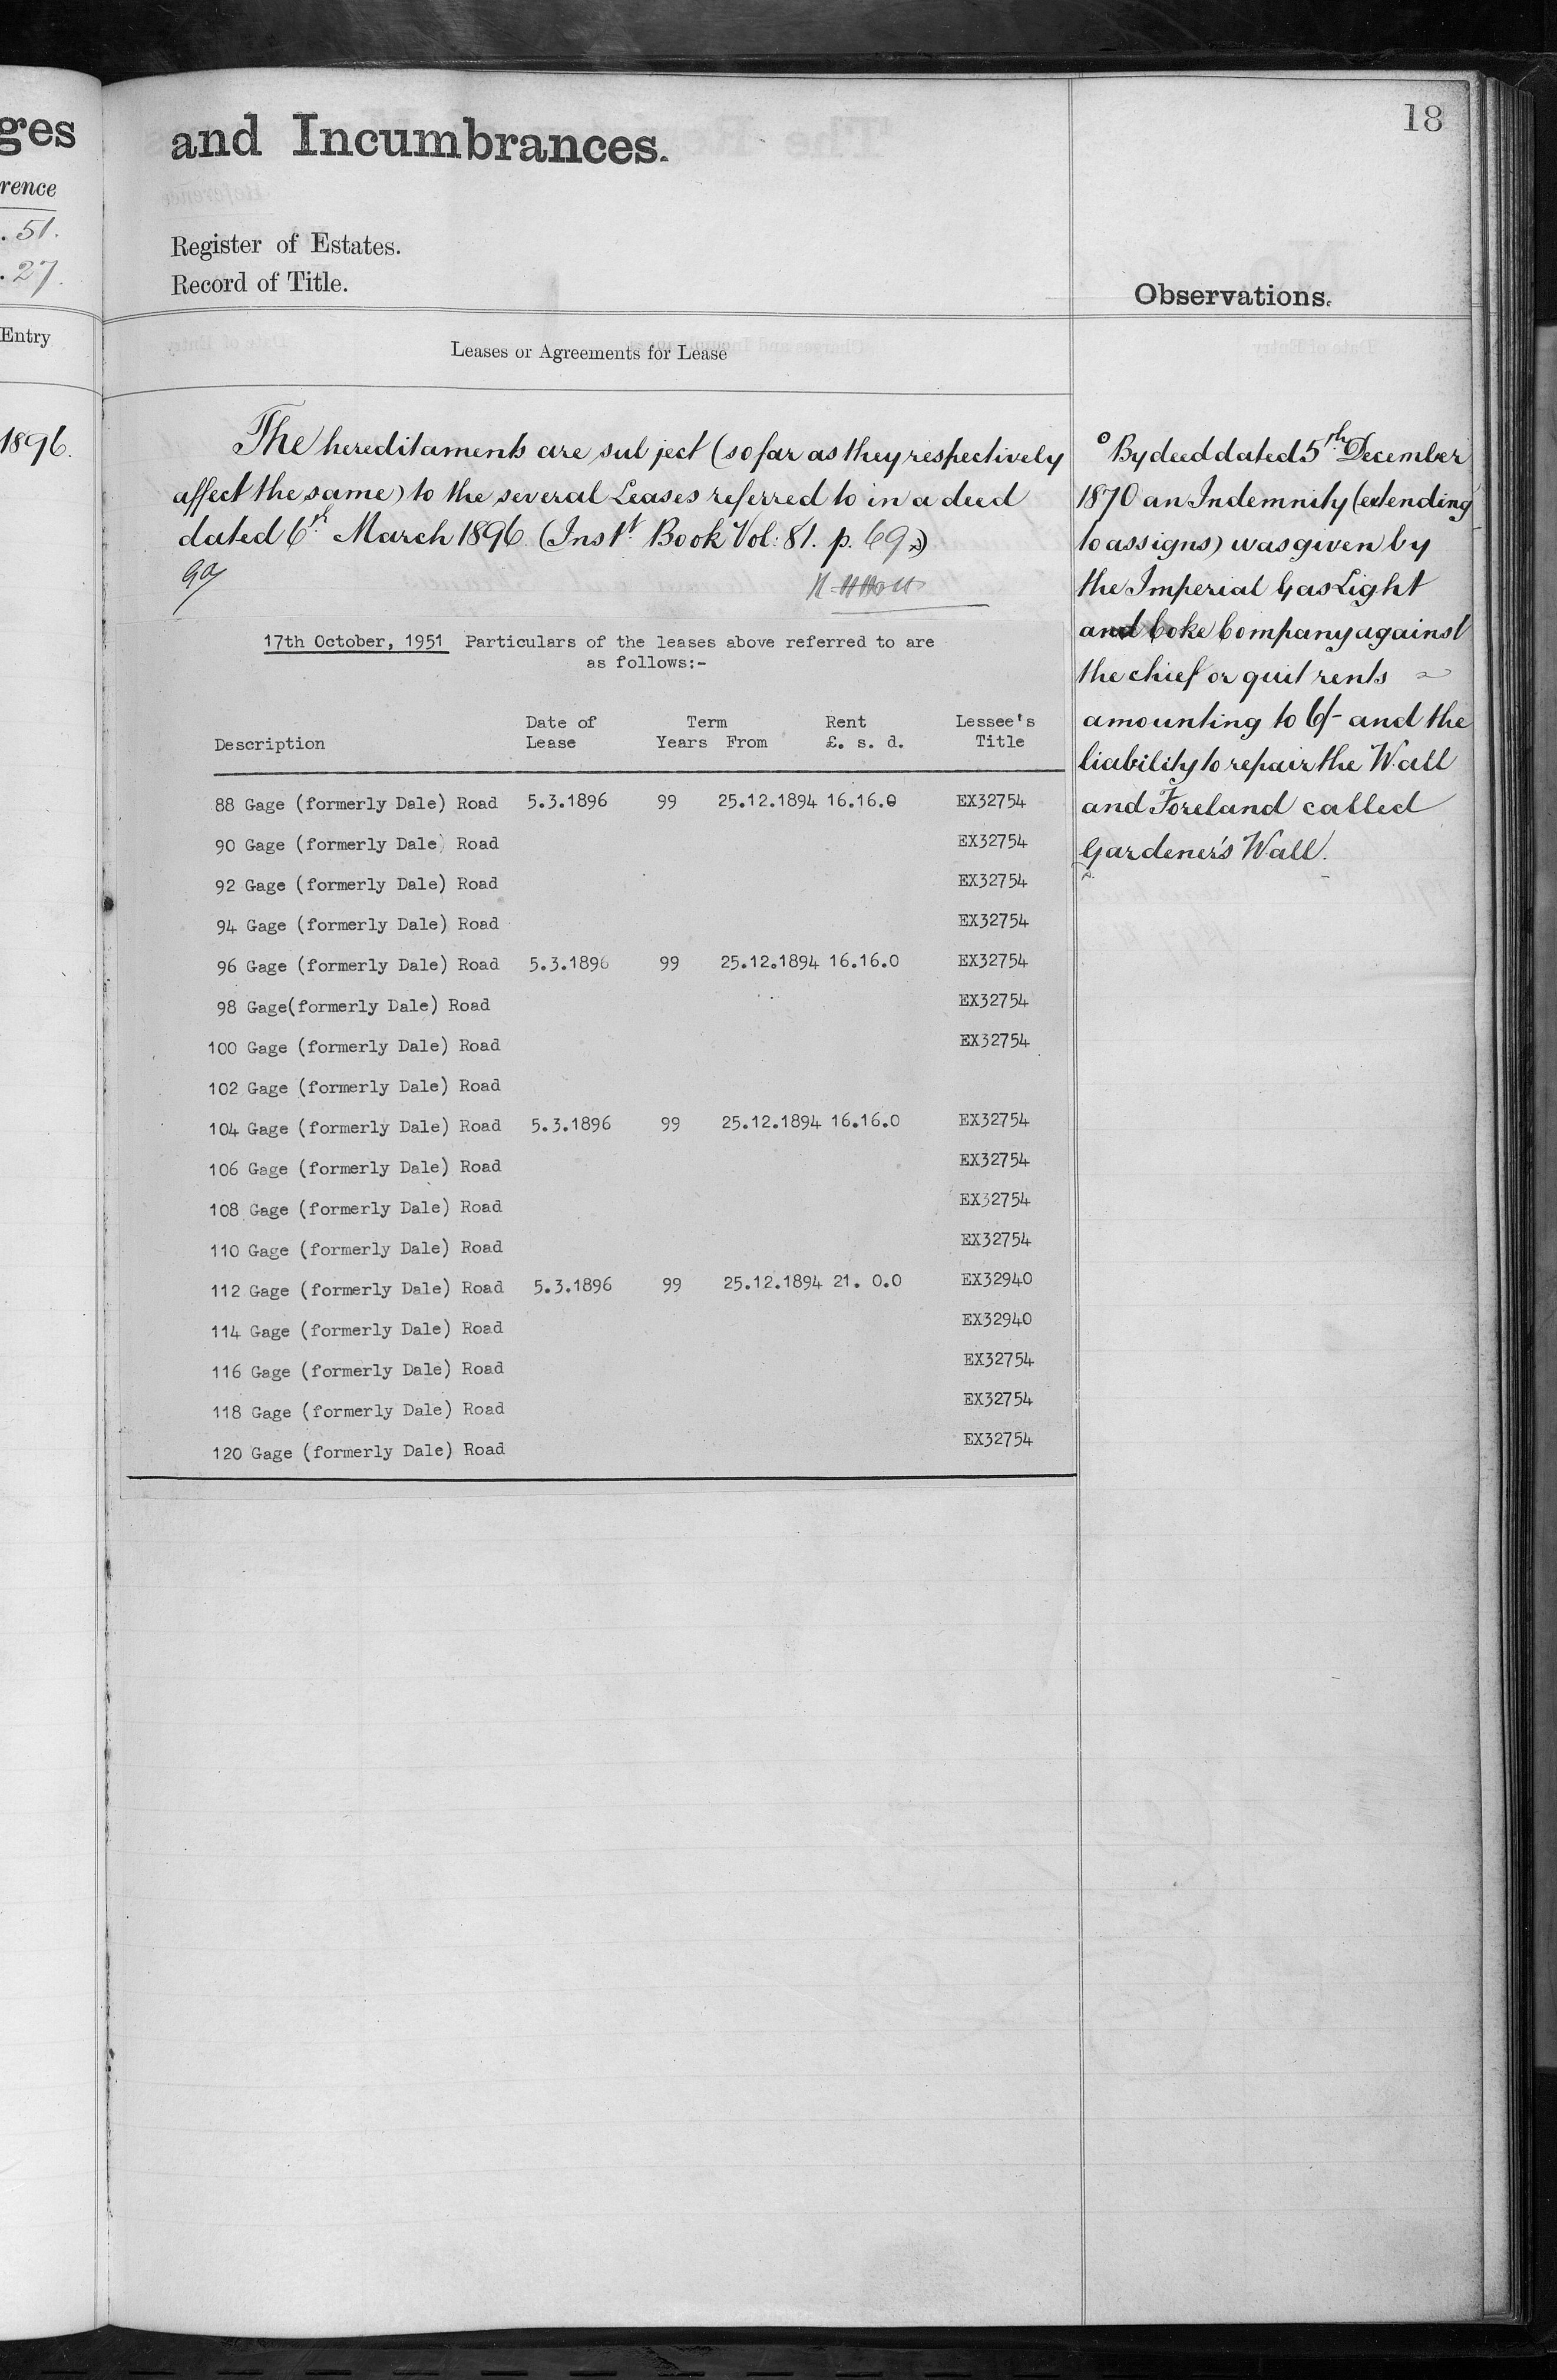 ges
rence
. 51.
. 27.
Entry
1896.
18
and Incumbrances.
Register of Estates.
Record of Title.
Observations.
Leases or Agreements for Lease
The hereditaments are subject (so far as they respectively
affect the same) to the several Leases referred to in a deed
dated 6th March 1896. (Instt Book Vol: 81. p. 69.)
17th October, 1951 Particulars of the leases above referred to are
as follows:-
Date of Term Rent Lessee's
Description Lease Years From £. s. d. Title
88 Gage (formerly Dale) Road 5.3.1896 99 25.12.1894 16.16.0 EX32754
90 Gage (formerly Dale) Road EX32754
92 Gage (formerly Dale) Road EX32754
94 Gage (formerly Dale) Road EX32754
96 Gage (formerly Dale) Road 5.3.1896 99 25.12.1894 16.16.0 EX32754
98 Gage(formerly Dale) Road EX32754
100 Gage (formerly Dale) Road EX32754
102 Gage (formerly Dale) Road
104 Gage (formerly Dale) Road 5.3.1896 99 25.12.1894 16.16.0 EX32754
106 Gage (formerly Dale) Road EX32754
108 Gage (formerly Dale) Road EX32754
110 Gage (formerly Dale) Road EX32754
112 Gage (formerly Dale) Road 5.3.1896 99 25.12.1894 21. 0.0 EX32940
114 Gage (formerly Dale) Road EX32940
116 Gage (formerly Dale) Road EX32754
118 Gage (formerly Dale) Road EX32754
120 Gage (formerly Dale) Road EX32754
o By deed dated 5th December
1870 an Indemnity (extending
to assigns) was given by
the Imperial Gas Light
and Coke Company against
the chief or quit rents
amounting to 6/- and the
liability to repair the Wall
and Foreland called
Gardener's Wall.